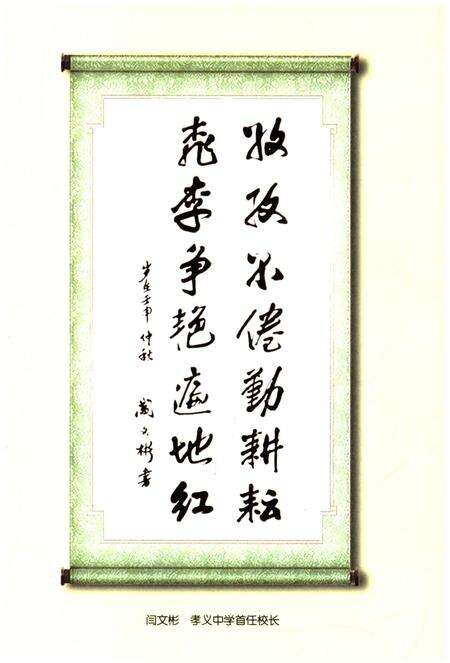 孜孜不倦勤耕耘
桃李争艳遍地红
岁在壬申仲秋
闫文彬书
闫文彬 孝义中学首任校长